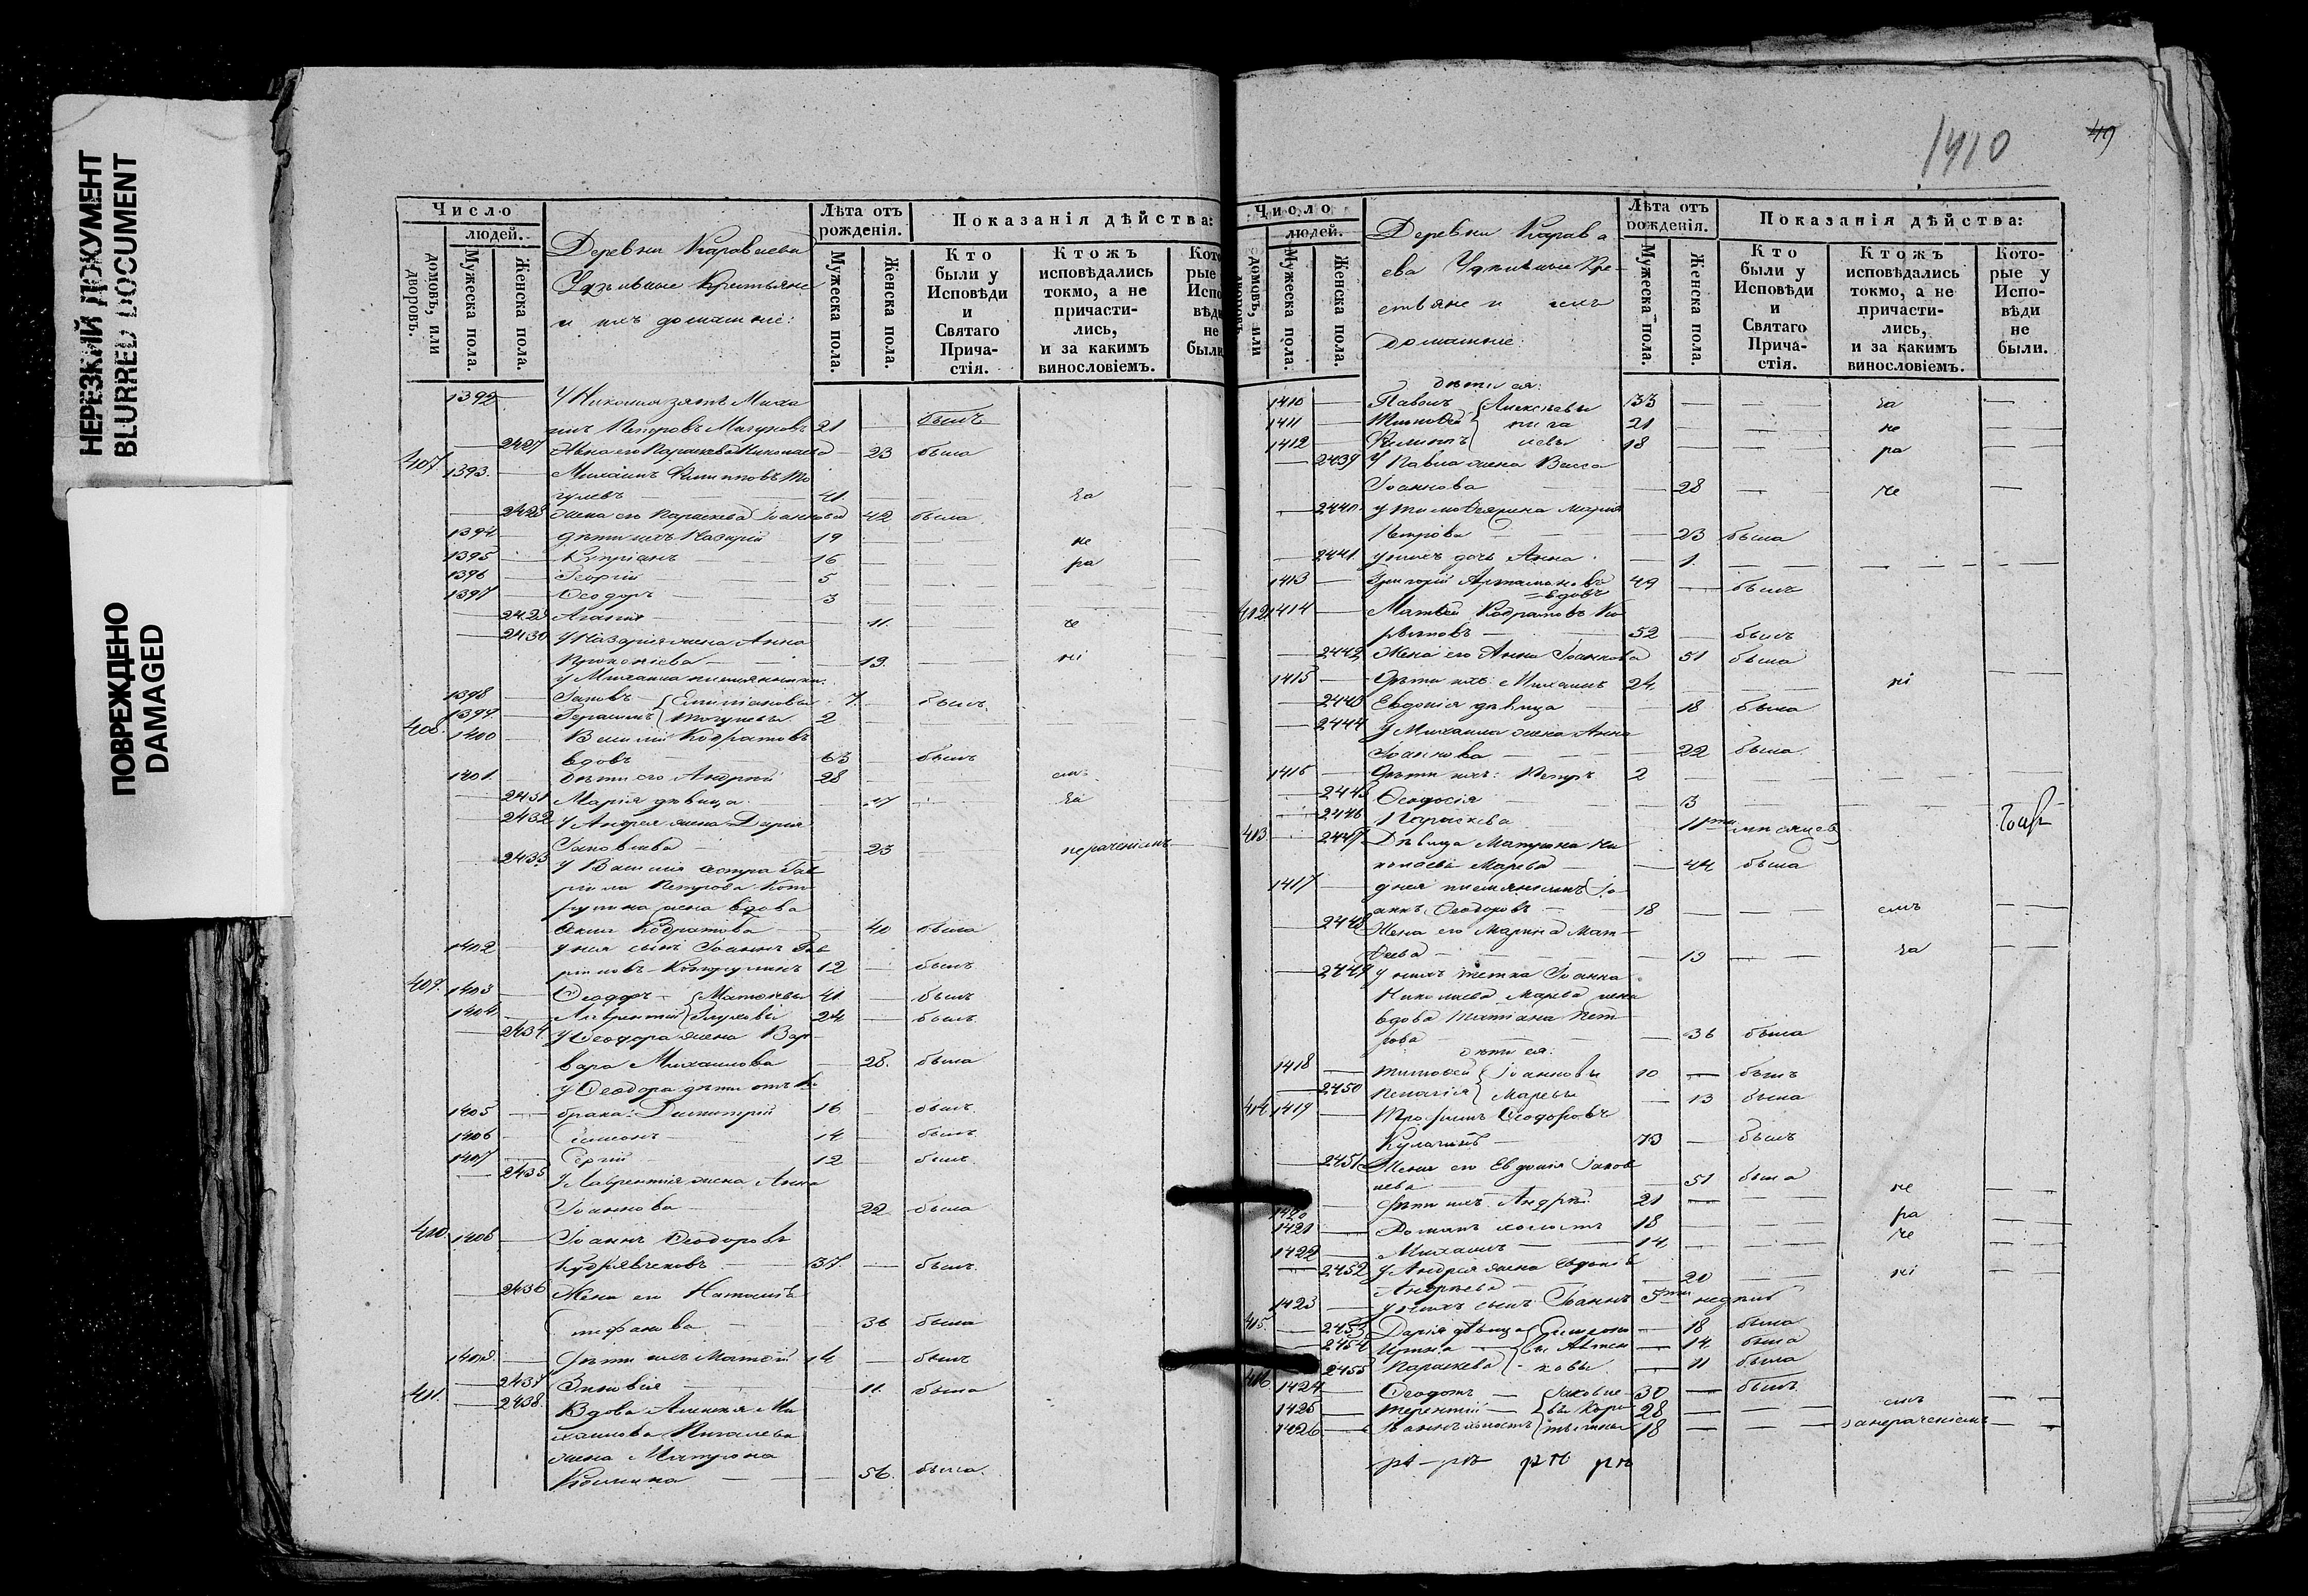 НЕРЕЗКИЙ ДОКУМЕНТ
BLURRED DOCUMENT
ПОВРЕЖДЕНО
DAMAGED
Число
людей.
домовъ, или дворовъ.
Мужеска пола.
Женска пола.
Деревни Караваева
Удѣльные Крестьяне
и ихъ домашніе:
Лѣта отъ рожденія.
Мужеска пола.
Женска пола.
Показанія дѣйства:
Кто были у Исповѣди и Святаго Прича-стія.
Ктожъ исповѣдались токмо, а не причасти-лись, и за какимъ винословіемъ.
1392 У Николая зять Миха
илъ Петровъ 21 былъ
2427 Жена его Параскева Николаева 23 была
407 1393. Михаилъ Филипповъ Мо
гулевъ 41. за
2428 жена его Параскева Іоаннова 42 была
1394 дѣти ихъ Назарій 19 не
1395 Купріанъ 16 ра
1396 Георгій 5
1397 Ѳеодоръ 3
2429 Агафія 11. че
2430 У Назарія жена Анна
Прокопіева 19. ні
у Михаила племянники:
1398 Іаковъ Емиліановы 7. былъ
1399. Герасимъ Могулевы 2
408. 1400 Василій Кодратовъ
вдовъ 63 былъ
1401. дѣти его Андрей 28 емъ
2431 Марія дѣвица 17 за
2432 У Андрея жена Дарія
Іаковлева 23 нераченіемъ
2433 У Василія сестра Гав
ріила Петрова
жена вдова
Кодратова 40 была
1402 у нея сынъ Іоаннъ Гав
риловъ 12 былъ
409. 1403 Ѳеодоръ Матѳіевы 41 былъ
1404 Лаврентій Глуховы 24 былъ
2434 У Ѳеодора жена Вар
вара Михаилова 28. была
у Ѳеодора дѣти отъ 1.
1405 брака: Димитрій 16 былъ
1406 Симеонъ 14 былъ
1407 Сергій 12 былъ
2435 У Лаврентія жена Анна
Іоаннова 22 была
410. 1408 Іоаннъ Ѳеодоровъ
37 былъ
2436 Жена его Наталія
Стефанова 36 была
1409. Дѣти ихъ Матѳій 14 былъ
2437 Зиновія 11. была
411. 2438. Вдова Алексѣя Ми
хаилова Пигалева
жена Матрона
Козмина 56. была
1410
49
Число
людей.
домовъ, или дворовъ.
Мужеска пола.
Женска пола.
Деревни Карава
ева Удѣльные Кре-
стьяне и ихъ
домашніе:
Лѣта отъ рожденія.
Мужеска пола.
Женска пола.
Показанія дѣйства:
Кто были у Исповѣди и Святаго Прича-стія.
Ктожъ исповѣдались токмо, а не причасти-лись, и за какимъ винословіемъ.
Кото-рые у Испо-вѣди не были.
дѣти ея:
1410 Павелъ Алексѣевы 33 за
1411 Тимоѳей пига 21 не
1412 Филиппъ левы 18 ра
2439 У Павла жена Васса
Іоаннова 28 че
2440. у Тимоѳея жена Марія
Петрова 23 была
2441 у нихъ дочь Анна 1.
1413 Григорій Артамоновъ 49 былъ
вдовъ
412 1414 Матѳей Кодратовъ Ки
52 былъ
2442 Жена его Анна Іоаннова 51 была
1415 Дѣти ихъ: Михаилъ 24 ні
2443 Евдокія дѣвица 18 была
2444 У Михаила жена Анна
Іоаннова 22 была
1416 Дѣти ихъ: Петръ 2
2445 Ѳеодосія 3
2446 Параскева 11ти мѣсяцевъ
413. 2447 Дѣвица Матрона Ни
колаева Марева 44 была
1417 у нея племянникъ Іо-
аннъ Ѳеодоровъ 18 емъ
2448 Жена его Марина Мат-
ѳеева 19 за
2449 у нихъ тетка Іоанна
Николаева Марева жена
вдова Татіана Пет
рова 36 была
дѣти ея:
1418 Тимоѳей Іоанновы 10 былъ
2450 Пелагія Маревы 13 была
414 1419 Трофимъ Ѳеодоровъ
Кулагинъ 73 былъ
2451 Жена его Евдокія Іаков
лева 51 была
1420 Дѣти ихъ Андрей 21 не
1421 Романъ холостъ 18 ра
1422 Михаилъ 14 че
2452 У Андрея жена Евдокія
Андреева 20 ні
1423 у нихъ сынъ Іоаннъ 5ти недѣль
415. 2453 Дарія дѣвица Симеоно 18 была
2454 Ирина вы 14 была
2455 Параскева ковы 11 была
416 1424 Ѳеодотъ Іаковле- 30 былъ
1425 Терентій вы 28 емъ
1426 Іоаннъ холостъ 18 за нераченіемъ